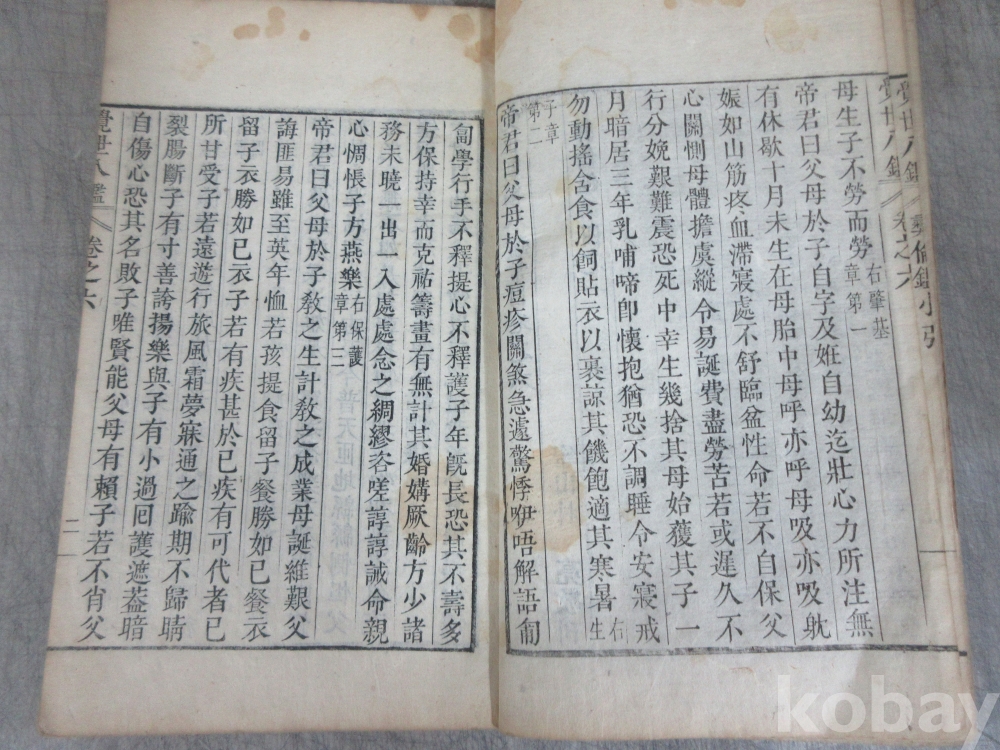 覺世八鑑
卷之六
彝倫鑑小引
母生子不勞而勞右肇基章第一
帝君曰父母於子自字及妊自幼迄壯心力所注無
有休歇十月未生在母胎中母呼亦呼母吸亦吸躭
娠如山筋疼血滯寢處不舒臨盆性命若不自保父
心關惻母體擔虞縱令易誕費盡勞苦若或遲久不
行分娩艱難震恐死中幸生幾捨其母始獲其子一
月暗居三年乳哺啼卽懷抱猶恐不調睡令安寢戒
勿動搖含食以飼貼衣以裹諒其饑飽適其寒暑右生
子章第二
帝君曰父母於子痘疹關煞急遽驚悸咿唔解語匍
匐學行手不釋提心不釋護子年旣長恐其不壽多
方保持幸而克祐籌畫有無計其婚媾厥齡方少諸
務未曉一出一入處處念之綢繆咨嗟諄諄誡命親
心惆悵子方燕樂右保護章第三
帝君曰父母於子敎之生計敎之成業母誕維艱父
誨匪易雖至英年恤若孩提食留子餐勝如已餐衣
留子衣勝如已衣子若有疾甚於已疾有可代者已
所甘受子若遠遊行旅風霜夢寐通之踰期不歸睛
裂腸斷子有寸善誇揚樂與子有小過囘護遮葢暗
自傷心恐其名敗子唯賢能父母有賴子若不肖父
覺世八鑑
卷之六
二
kobay